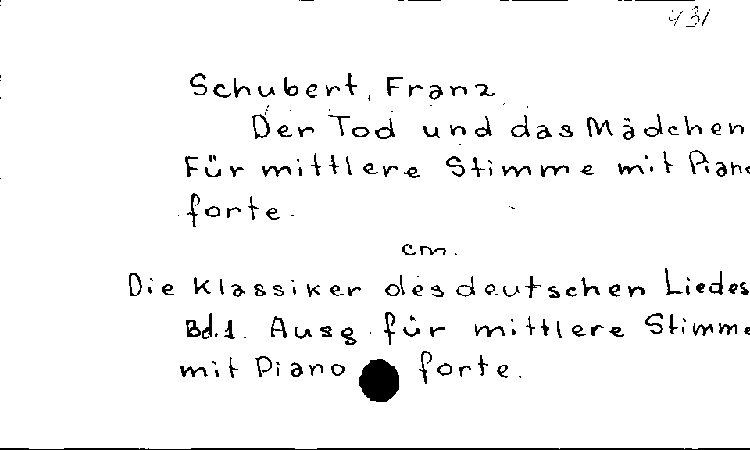 431
Schubert, Franz
Der Tod und das Mädchen
Für mittlere Stimme mit Piano
forte.
cm.
Die Klassiker des deutschen Liedes
Bd.1. Ausg. für mittlere Stimme
mit Piano forte.